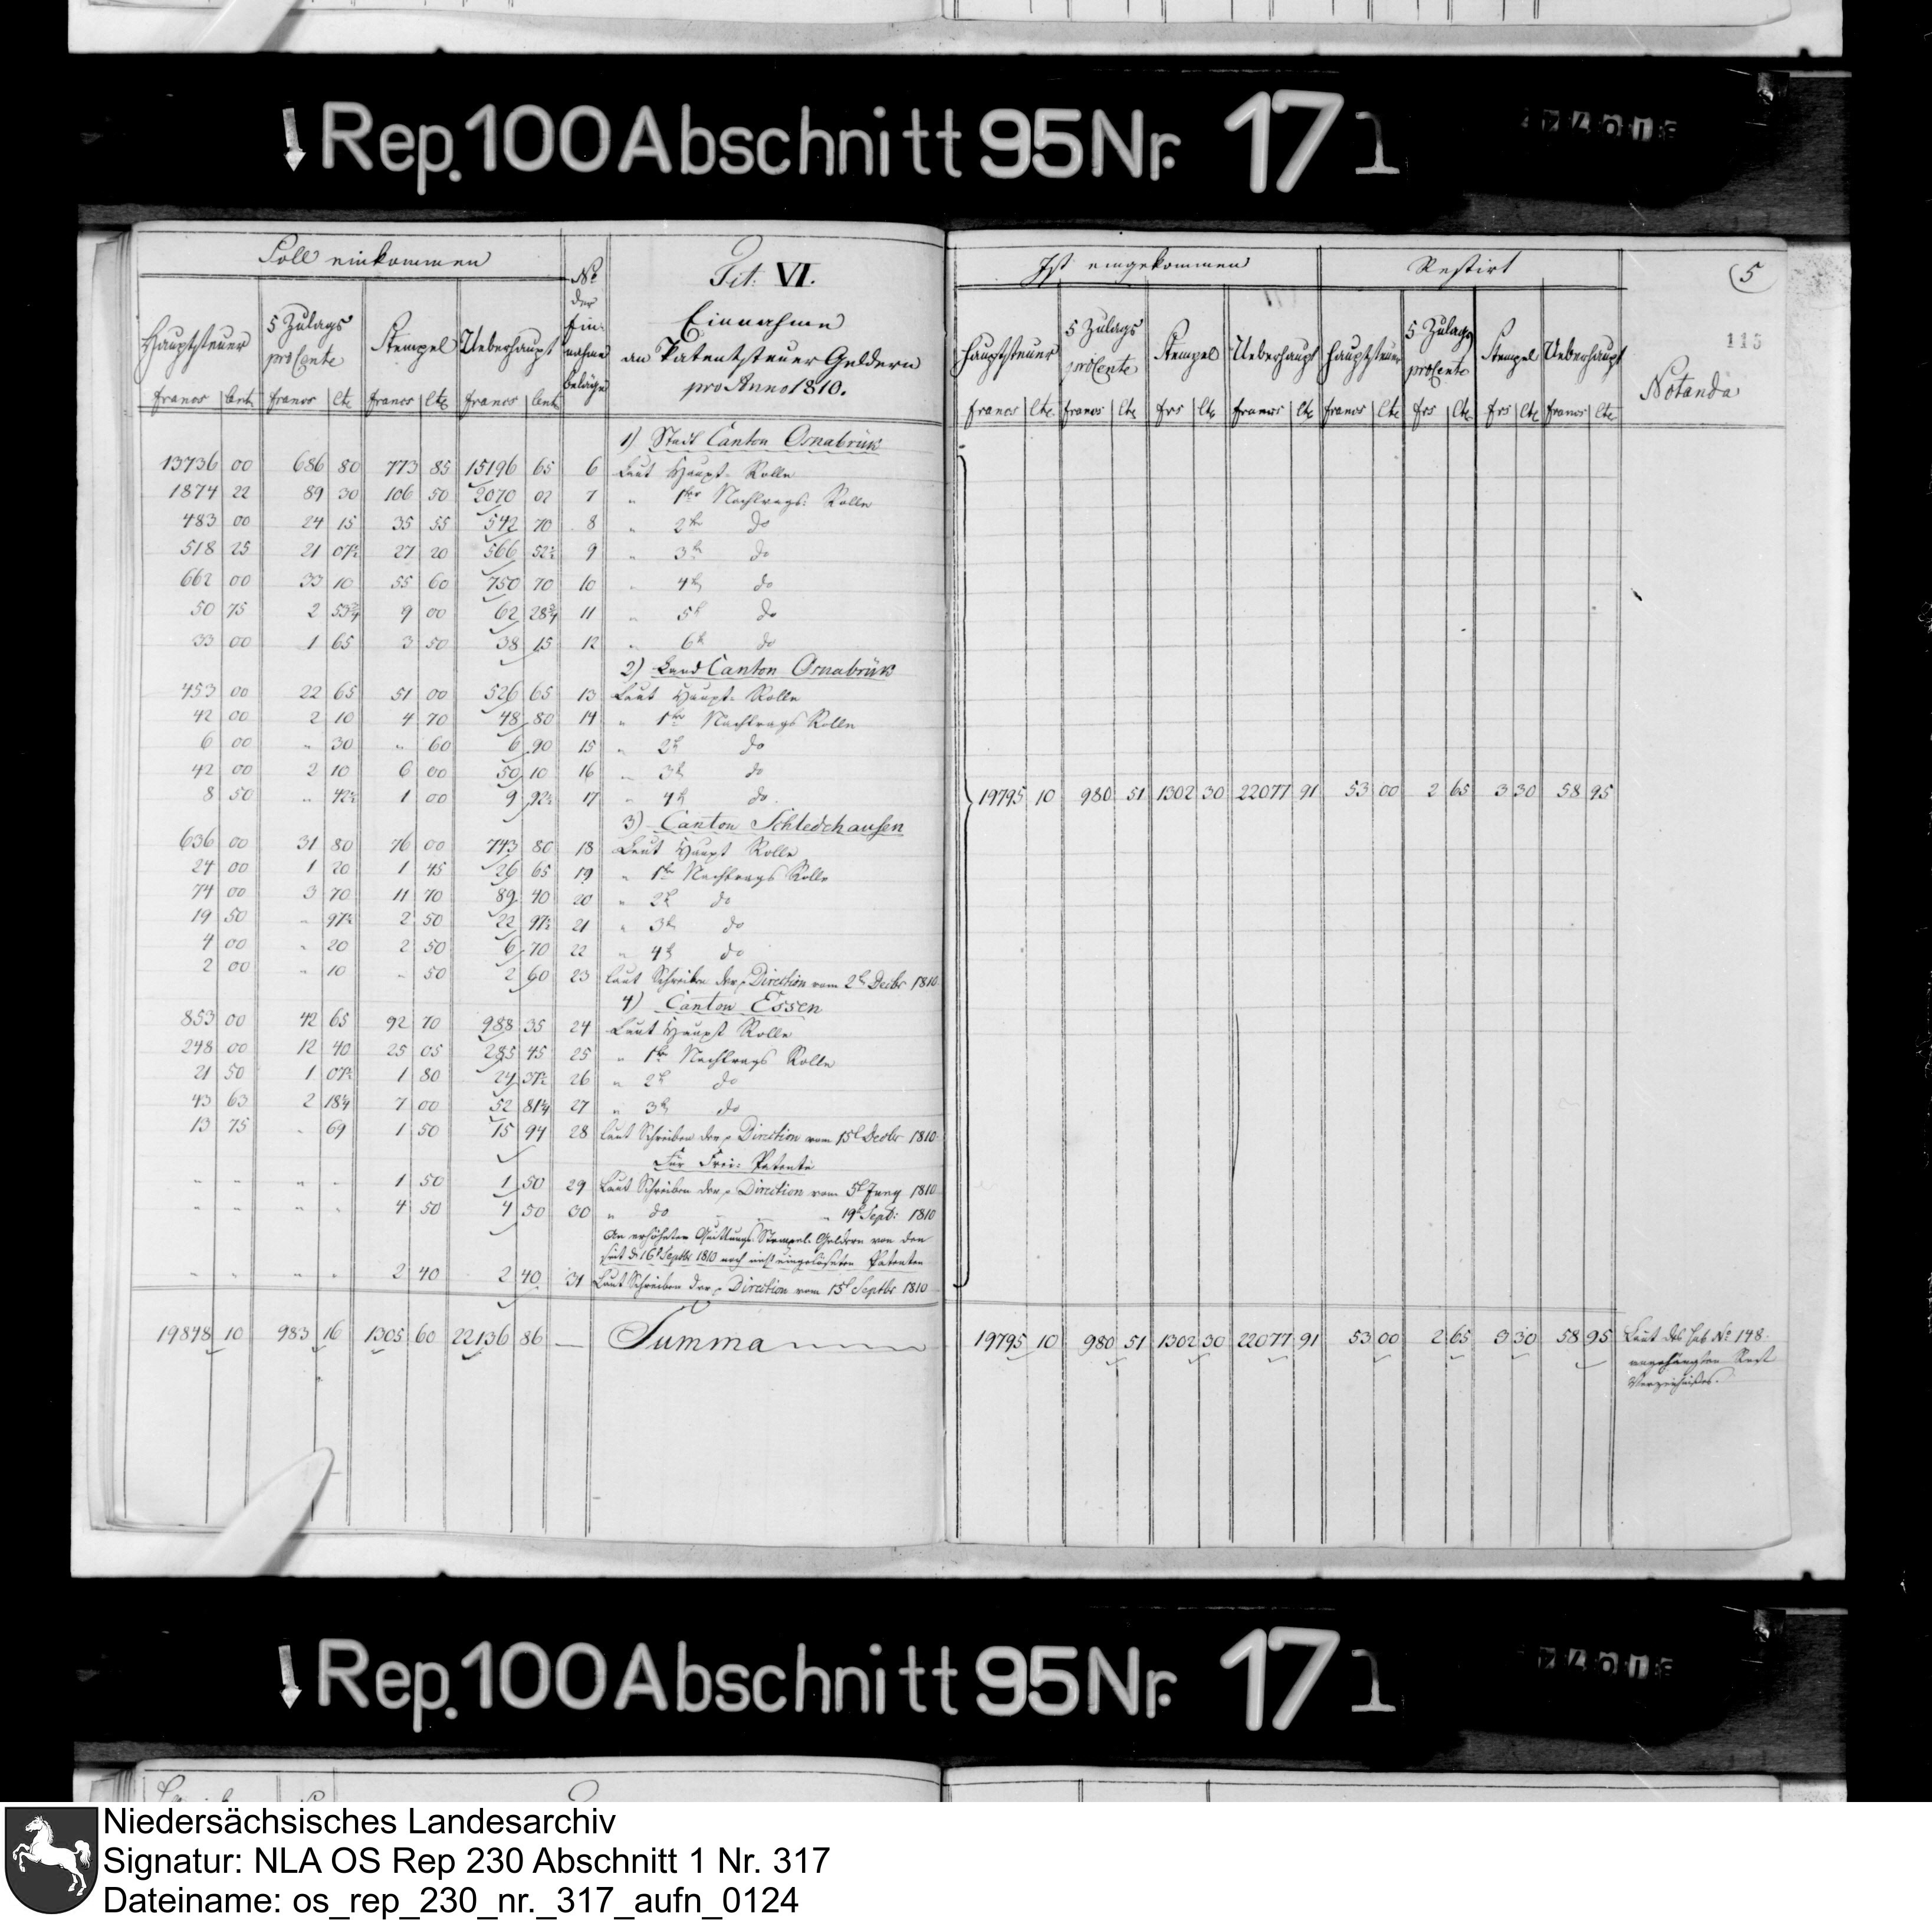 Rep. 100 Abschnitt 95 Nr. 171
Soll einkommen
No der Einnahme Beläge
Tit: VI.
Einnahme
an Patentsteuer Geldern
pro Anno 1810.
Hauptsteuer 5 Zulags proCente Stempel Ueberhaupt
francs Cent francs Cte francs Cte francs Cent
1) Stadt Canton Osnabrük
13736 00 686 80 773 85 15196 65 6 Laut Haupt-Rolle
1874 22 89 30 106 50 2070 02 7 " 1ter Nachtrags-Rolle
483 00 24 15 35 55 542 70 8 " 2ter do
518 25 21 07½ 27 20 566 52½ 9 " 3t do
662 00 33 10 55 60 750 70 10 " 4t do
50 75 2 53¾ 9 00 62 28¾ 11 " 5t do
33 00 1 65 3 50 38 15 12 " 6t do
2) Land Canton Osnabrük
453 00 22 65 51 00 526 65 13 Laut Haupt-Rolle
42 00 2 10 4 70 48 80 14 " 1ter Nachtrags Rolle
6 00 " 30 " 60 6 90 15 " 2t do
42 00 2 10 6 00 50 10 16 " 3t do
8 50 " 42½ 1 00 9 92½ 17 " 4t do
3) Canton Schledehausen
636 00 31 80 76 00 743 80 18 Laut Haupt Rolle
24 00 1 20 1 45 26 65 19 " 1ter Nachtrags Rolle
74 00 3 70 11 70 89 40 20 " 2t do
19 50 " 97½ 2 50 22 97½ 21 " 3t do
4 00 " 20 2 50 6 70 22 " 4t do
2 00 " 10 " 50 2 60 23 Laut Schreiben der Direction vom 2t Decbr 1810
4) Canton Essen
853 00 42 65 92 70 988 35 24 Laut Haupt Rolle
248 00 12 40 25 05 285 45 25 " 1ter Nachtrags Rolle
21 50 1 07½ 1 80 24 37½ 26 " 2t do
43 63 2 18¼ 7 00 52 81¼ 27 " 3t do
13 75 " 69 1 50 15 94 28 Laut Schreiben der Direction vom 15t Decbr 1810
Für Frei-Patente
" " " " 1 50 1 50 29 Laut Schreiben der Direction vom 5t Juny 1810
" " " " 4 50 4 50 30 " do " 19t Sept: 1810
An erhöhten Quittungs Stempel Geldern von den
seit d. 16t Septbr 1810 noch nicht eingelöseten Patenten
" " " " 2 40 2 40 31 Laut Schreiben der Direction vom 15t Septbr 1810
19848 10 983 16 1305 60 22136 86 — Summa
Ist eingekommen Restirt
5
115
Hauptsteuer 5 Zulags proCente Stempel Ueberhaupt Hauptsteuer 5 Zulags proCente Stempel Ueberhaupt
Notanda
francs Cte francs Cte frs Cte francs Cte francs Cte frs Cte frs Cte francs Cte
19795 10 980 51 1302 30 22077 91 53 00 2 65 3 30 58 95
19795 10 980 51 1302 30 22077 91 53 00 2 65 3 30 58 95 Laut des sub No 148
angehängten Rest
Verzeichnißes.
Rep. 100 Abschnitt 95 Nr. 171
Niedersächsisches Landesarchiv
Signatur: NLA OS Rep 230 Abschnitt 1 Nr. 317
Dateiname: os_rep_230_nr._317_aufn_0124